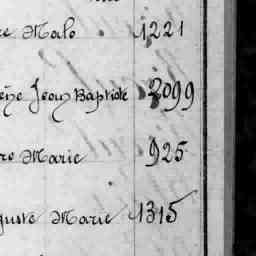 Malo 1221
Jean Baptiste 2099
Marie 925
Marie 1315